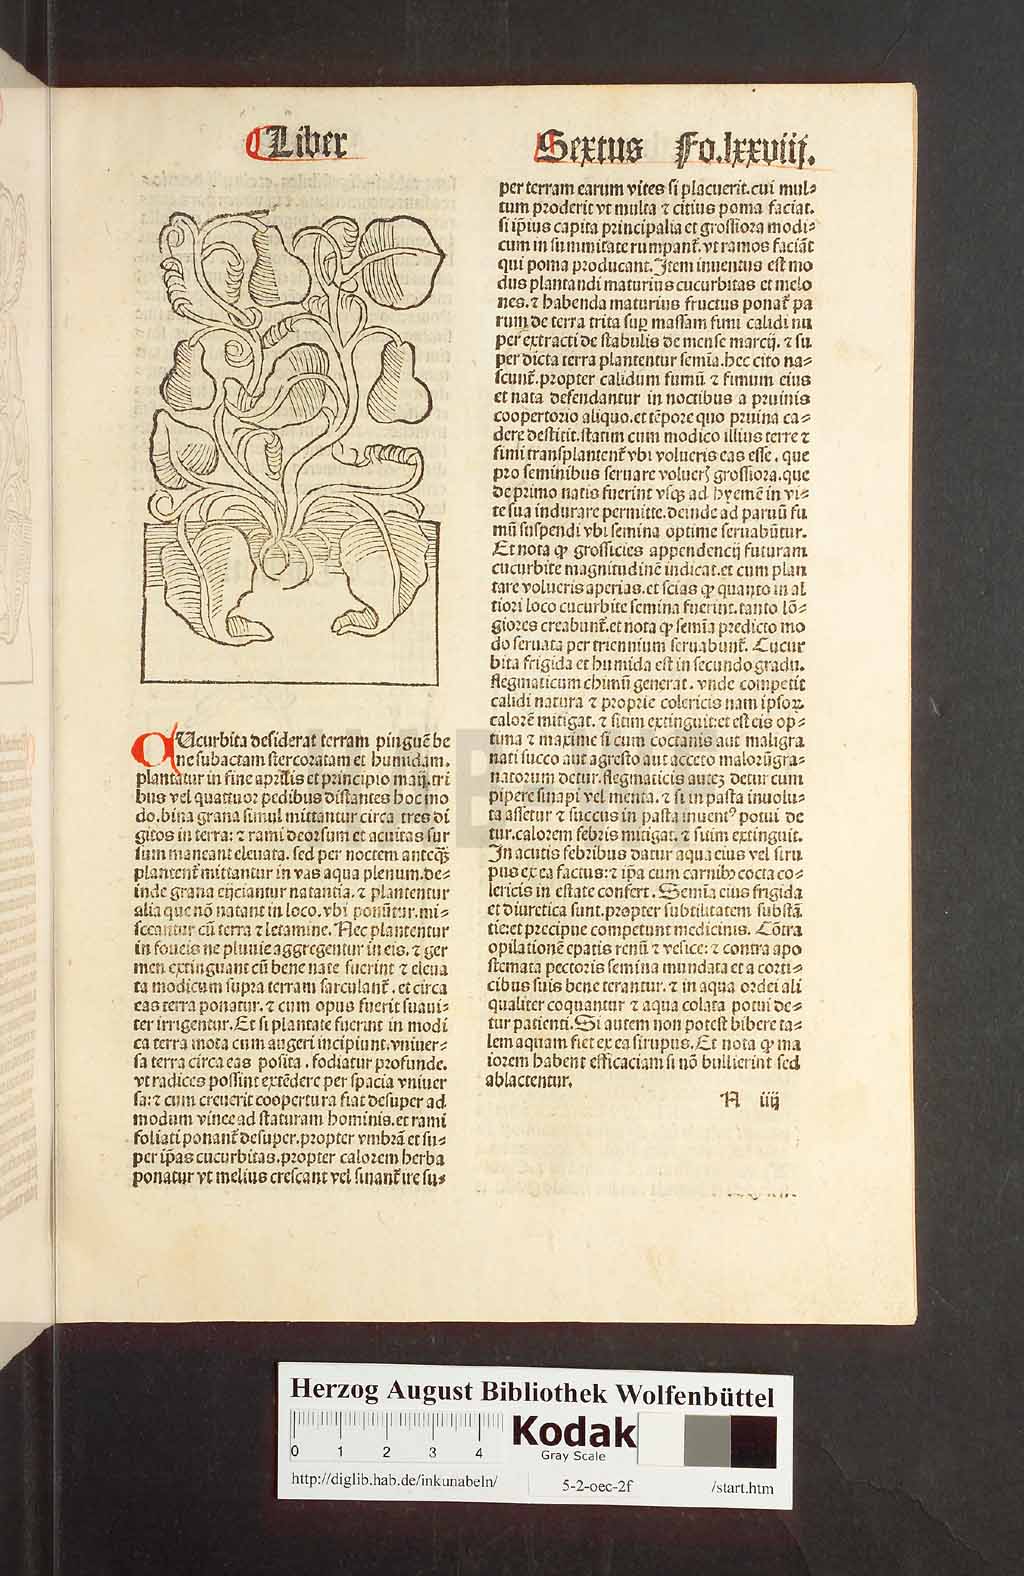 Liber
Sextus Fo.lxxviij.
Ucurbita desiderat terram pinguē be
ne subactam stercoratam et humidam.
plantatur in fine aprilis et principio maij. tri
bus vel quattuor pedibus distantes hoc mo
do. bina grana simul mittantur circa tres di
gitos in terra: ⁊ rami deorsum et acuitas sur
sum maneant eleuata. sed per noctem anteqȝ
plantent᷑ mittantur in vas aqua plenum. de⸗
inde grana eijciantur natantia. ⁊ plantentur
alia que nō natant in loco. vbi ponūtur. mi⸗
sceantur cū terra ⁊ letamine. Nec plantentur
in foueis ne pluuie aggregentur in eis. ⁊ ger
men extinguant cū bene nate fuerint ⁊ eleua
ta modicum supra terram sarculant᷑. et circa
eas terra ponatur. ⁊ cum opus fuerit suaui⸗
ter irrigentur. Et si plantate fuerint in modi
ca terra mota cum augeri incipiunt. vniuer⸗
sa terra circa eas posita. fodiatur profunde.
vt radices possint extēdere per spacia vniuer
sa: ⁊ cum creuerit coopertura fiat desuper ad
modum vinee ad staturam hominis. et rami
foliati ponant᷑ desuper. propter vmbrā et su⸗
per ip̄as cucurbitas. propter calorem herba
ponatur vt melius crescant vel sinant᷑ ire su⸗
per terram earum vites si placuerit. cui mul⸗
tum proderit vt multa ⁊ citius poma faciat.
si ip̄ius capita principalia et grossiora modi⸗
cum in summitate rumpant᷑. vt ramos faciāt
qui poma producant. Item inuentus est mo
dus plantandi maturius cucurbitas et melo
nes. ⁊ habenda maturius fructus ponat᷑ pa
rum de terra trita sup̱ massam fimi calidi nu
per extracti de stabulis de mense marcij. ⁊ su
per dicta terra plantentur semīa. hec cito na⸗
scunt᷑. propter calidum fumū ⁊ fimum eius
et nata defendantur in noctibus a pruinis
coopertorio aliquo. et tēpore quo pruina ca⸗
dere destitit. statim cum modico illius terre ⁊
fimi transplantent᷑ vbi volueris eas esse. que
pro seminibus seruare volueꝝ grossiora. que
de primo natis fuerint vsqȝ ad hyemē in vi⸗
te sua indurare permitte. deinde ad paruū fu
mū suspendi vbi semina optime seruabūtur.
Et nota ꝙ grossicies appendencij futuram
cucurbite magnitudinē indicat. et cum plan
tare volueris aperias. et scias ꝙ quanto in al
tiori loco cucurbite semina fuerint. tanto lō⸗
giores creabunt᷑. et nota ꝙ semīa predicto mo
do seruata per triennium seruabunt᷑. Cucur
bita frigida et humida est in secundo gradu.
flegmaticum chimū generat. vnde competit
calidi natura ⁊ proprie colericis nam ipsoꝝ
calorē mitigat. ⁊ sitim extinguit: et est eis op⸗
tima ⁊ maxime si cum coctanis aut maligra
nati succo aut agresto aut acceto malorūgra⸗
natorum detur. flegmaticis auteȝ detur cum
pipere sinapi vel menta. ⁊ si in pasta inuolu⸗
ta assetur ⁊ succus in pasta inuentꝰ potui de
tur. calorem febris mitigat. ⁊ sitim extinguit.
In acutis febribus datur aqua eius vel siru
pus ex ea factus: ⁊ ip̄a cum carnibꝰ cocta co⸗
lericis in estate confert. Semīa eius frigida
et diuretica sunt. propter subtilitatem substā
tie: et precipue competunt medicinis. Cōtra
opilationē epatis renū ⁊ vesice: ⁊ contra apo
stemata pectoris semina mundata et a corti⸗
cibus suis bene terantur. ⁊ in aqua ordei ali
qualiter coquantur ⁊ aqua colata potui de⸗
tur patienti. Si autem non potest bibere ta⸗
lem aquam fiet ex ea sirupus. Et nota ꝙ ma
iorem habent efficaciam si nō bullierint sed
ablactentur.
A iiij
Herzog August Bibliothek Wolfenbüttel
0 1 2 3 4
Kodak
Gray Scale
http://diglib.hab.de/inkunabeln/ 5-2-oec-2f /start.htm